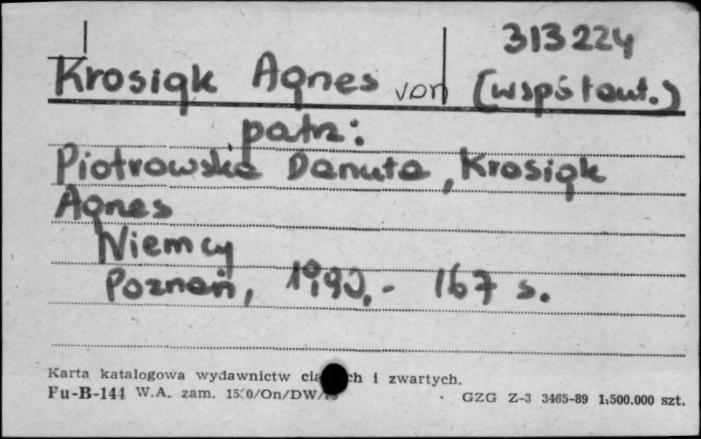 313224
Krosigk Agnes von (współaut.)
patrz:
Piotrowska Danuta, Krosigk
Agnes
Niemcy
Poznań, 1990.- 167 s.
Karta katalogowa wydawnictw i zwartych.
Fu-B-141 W.A. zam.
GZG Z-3 3465-89 1.500.000 szt.